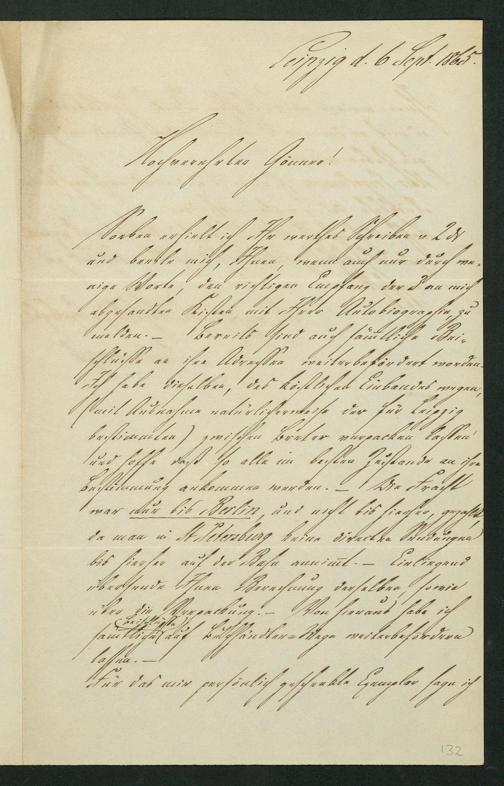 Leipzig d. 6 Sept. 1865.
Hochverehrter Gönner!
Soeben erhielt ich Ihr werthes Schreiben v 2 ds
und beeile mich, Ihnen, wenn auch nur durch we-
nige Worte, den richtigen Empfang der 3 an mich
abgesandten Kisten mit Ihrer Autobiographie, zu
melden. — Bereits sind auch sämtliche Bei-
schlüsse an ihre Adressen weiterbefördert worden.
Ich habe dieselben, des köstlichen Einbandes wegen,
(mit Ausnahme natürlicherweise der für Leipzig
bestimmten) zwischen Breter verpacken lassen
und hoffe daß so alle im besten Zustande an ihre
Bestimmung ankommen werden. — Die Fracht
war nur bis Berlin, und nicht bis hieher, gezahlt
da man in St Petersburg keine directen Sendungen
bis hieher auf der Bahn annimt. — Einliegend
übersende Ihnen Berechnung derselben, sowie
über die Verpackung. — Von hieraus habe ich
Beischlüsse
sämtliche auf Buchhändler-Wege weiterbefördern
lassen. —
Für das mir persönlich geschenkte Exemplar sage ich
132